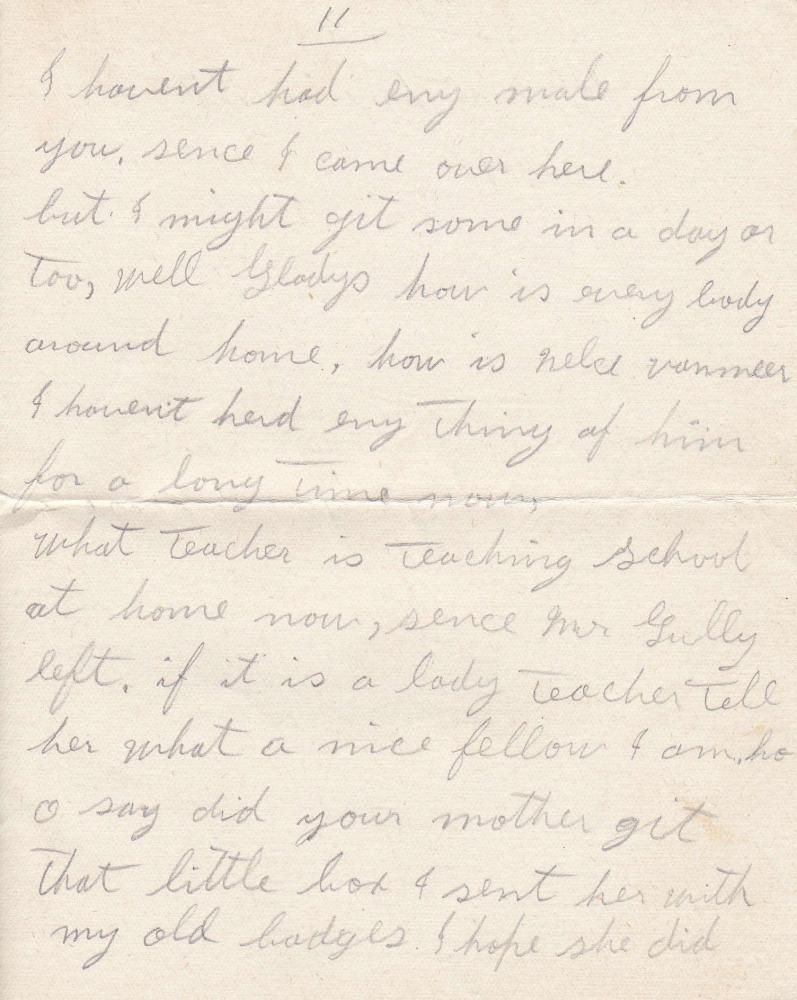 11
I havent had eny male from
you, sence I came over here.
but I might git some in a day or
too, well Gladys how is every body
around home, how is vanmeer
I havent herd eny thing of him
for a long time now,
what teacher is teaching school
at home now, sence Mr Gully
left. if it is a lady teacher tell
her what a nice fellow I am, ho
o say did your mother git
that little box I sent her with
my old badges. I hope she did